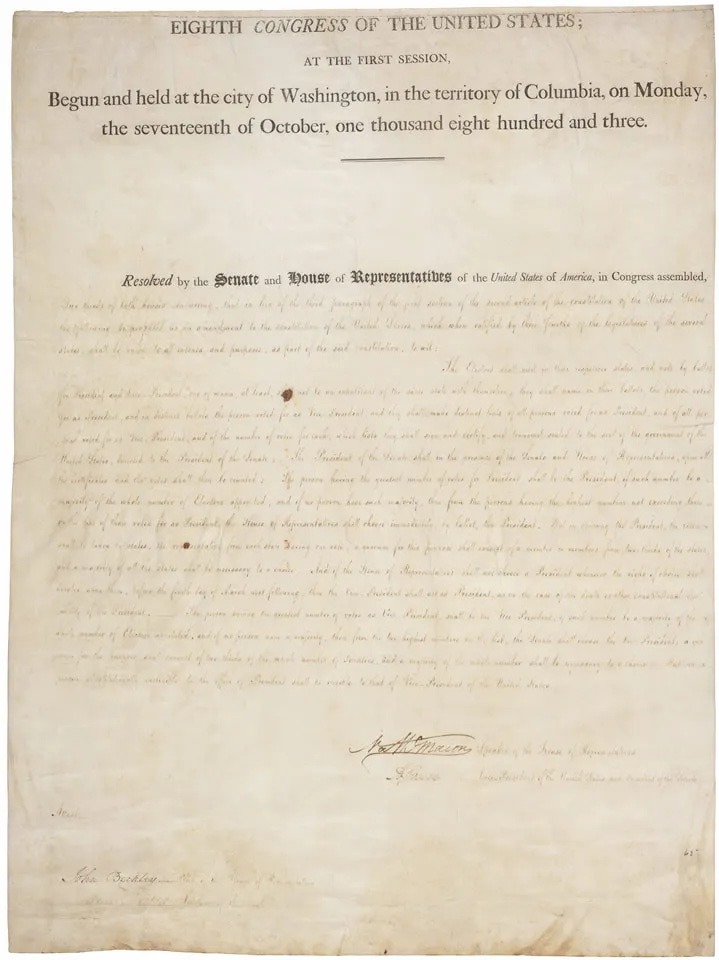 EIGHTH CONGRESS OF THE UNITED STATES;
AT THE FIRST SESSION,
Begun and held at the city of Washington, in the territory of Columbia, on Monday,
the seventeenth of October, one thousand eight hundred and three.
Resolved by the Senate and House of Representatives of the United States of America, in Congress assembled,
Two thirds of both houses concurring, that in lieu of the third paragraph of the first section of the second article of the constitution of the United States
the following be proposed as an amendment to the constitution of the United States, which when ratified by three fourths of the legislatures of the several
states, shall be valid to all intents and purposes, as part of the said constitution, to wit:
The Electors shall meet in their respective states, and vote by ballot
for President and Vice President, one of whom, at least, shall not be an inhabitant of the same state with themselves; they shall name in their ballots the person voted
for as President, and in distinct ballots the person voted for as Vice President and they shall make distinct lists of all persons voted for as President, and of all per
sons voted for as Vice President, and of the number of votes for each, which lists they shall sign and certify, and transmit sealed to the seat of the government of the
United States, directed to the President of the Senate; The President of the Senate shall in the presence of the Senate and House of Representatives, open all
the certificates and the votes shall then be counted; The person having the greatest number of votes for President shall be the President, if such number be a
majority of the whole number of Electors appointed; and if no person have such majority, then from the persons having the highest numbers not exceeding three
on the list of those voted for as President, the House of Representatives shall choose immediately, by ballot, the President. But in choosing the President, the votes
shall be taken by states, the from each state having one vote; a quorum for this purpose shall consist of a member or members from two thirds of the states,
and a majority of all the states shall be necessary to a choice. And if the House of Representatives shall not choose a President whenever the right of choice shall
devolve upon them, before the fourth day of March next following, then the Vice President shall act as President, as in the case of the death or other constitutional
of the President. The person having the greatest number of votes as Vice President, shall be the Vice President, if such number be a majority of the
number of Electors appointed, and if no person have a majority, then from the two highest numbers on the list, the Senate shall choose the Vice President; a
for the purpose shall consist of two thirds of the whole number of Senators, and a majority of the whole number shall be necessary to a choice. But no
person constitutionally ineligible to the office of President shall be eligible to that of Vice-President of the United States.
Speaker of the House of Representatives
of the United States
Attest
John Beckley